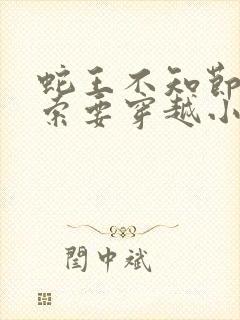 蛇王不知節
索要穿越小
閆中斌